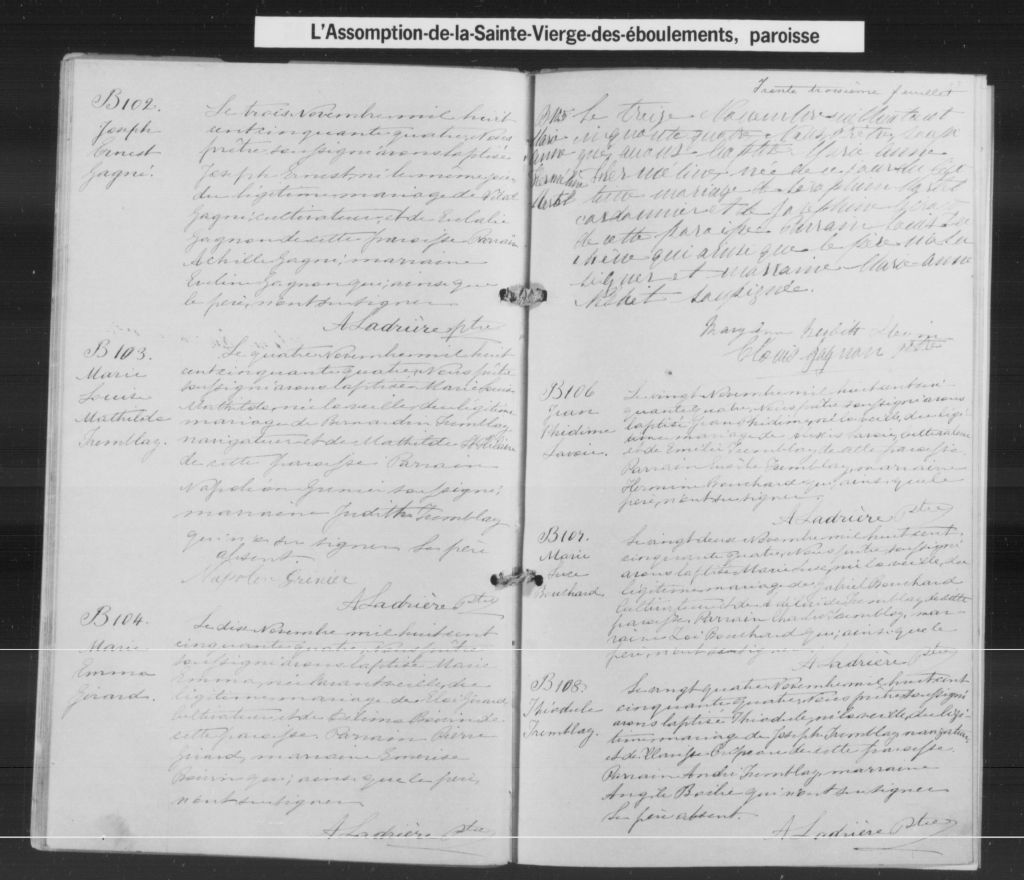 L'Assomption-de-la-Sainte-Vierge-des-éboulements, paroisse
B102.
Joseph
Ernest
Gagné.
Le trois Novembre mil huit
cent cinquante quatre Nous
prêtre soussigné avons baptisé
Joseph Ernest né le même jour
du légitime mariage de Vital
Gagné; cultivateur, et de Eulalie
Gagnon de cette paroisse Parrain
Achille Gagné; marraine
Evelin Gagnon qui; ainsi que
le père, n'ont su signer
A Ladrière ptre
B103.
Marie
Louise
Mathilde
Tremblay.
Le quatre Novembre mil huit
cent cinquante quatre, Nous prêtre
soussigné avons baptisé Marie Louise
Mathilde, née la veille, du légitime
mariage de Bernardin Tremblay
navigateur et de Mathilde
de cette paroisse Parrain
Napoléon Grenier soussigné;
marraine Judith Tremblay
qui n'a su signer Le père
absent
Napoléon Grenier
A Ladrière Ptre
B104.
Marie
Emma
Girard.
Le dix Novembre mil huit cent
cinquante quatre, Nous prêtre
soussigné avons baptisé Marie
Emma, née l'avant veille, du
légitime mariage de Eloi Girard,
cultivateur et de
cette paroisse. Parrain Pierre
Girard, marraine
qui; ainsi que le père,
n'ont su signer
A Ladrière Ptre
Trente troisième feuillet
Marie
anne
Le treize Novembre mil huit cent
cinquante quatre Nous prêtre
avons baptisé Marie anne
née de ce jour du légi
time mariage de
cordonnier et de Joséphine
de cette paroisse Parrain Louis
qui ainsi que le père n'a su
signer et marraine Marie anne
soussignée.
Clovis Gagnon ptre
B106
Jean
Phidime
Lavoie.
Le vingt Novembre mil huit cent cin
quante quatre, Nous prêtre soussigné avons
baptisé Jean Phidime, né la veille, du légi
time mariage de Lavoie, cultivateur
et de Emilie Tremblay de cette paroisse.
Parrain Tremblay, marraine
Hermine Bouchard qui, ainsi que le
père, n'ont su signer
A Ladrière Ptre
B107.
Marie
Luce
Bouchard
Le vingt deux Novembre mil huit cent
cinquante quatre, Nous prêtre soussigné
avons baptisé Marie Luce, née la veille, du
légitime mariage de Gabriel Bouchard
cultivateur et de Tremblay de cette
paroisse. Parrain Tremblay, mar
raine Bouchard qui; ainsi que le
père, n'ont su signer
A Ladrière Ptre
B108.
Théodule
Tremblay.
Le vingt quatre Novembre mil huit cent
cinquante quatre Nous prêtre soussigné
avons baptisé Théodule né la veille, du légi
time mariage de Joseph Tremblay navigateur,
et de de cette paroisse.
Parrain André Tremblay, marraine
Angèle qui n'ont su signer
Le père absent.
A Ladrière Ptre